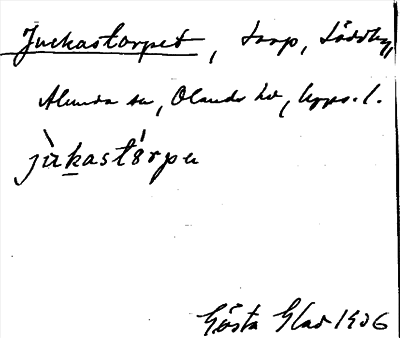 Juckastorpet, torp, Söddby,
Alunda sn, Olands hd, Upps. l.
jùkastórpu
Gösta Glad 1936